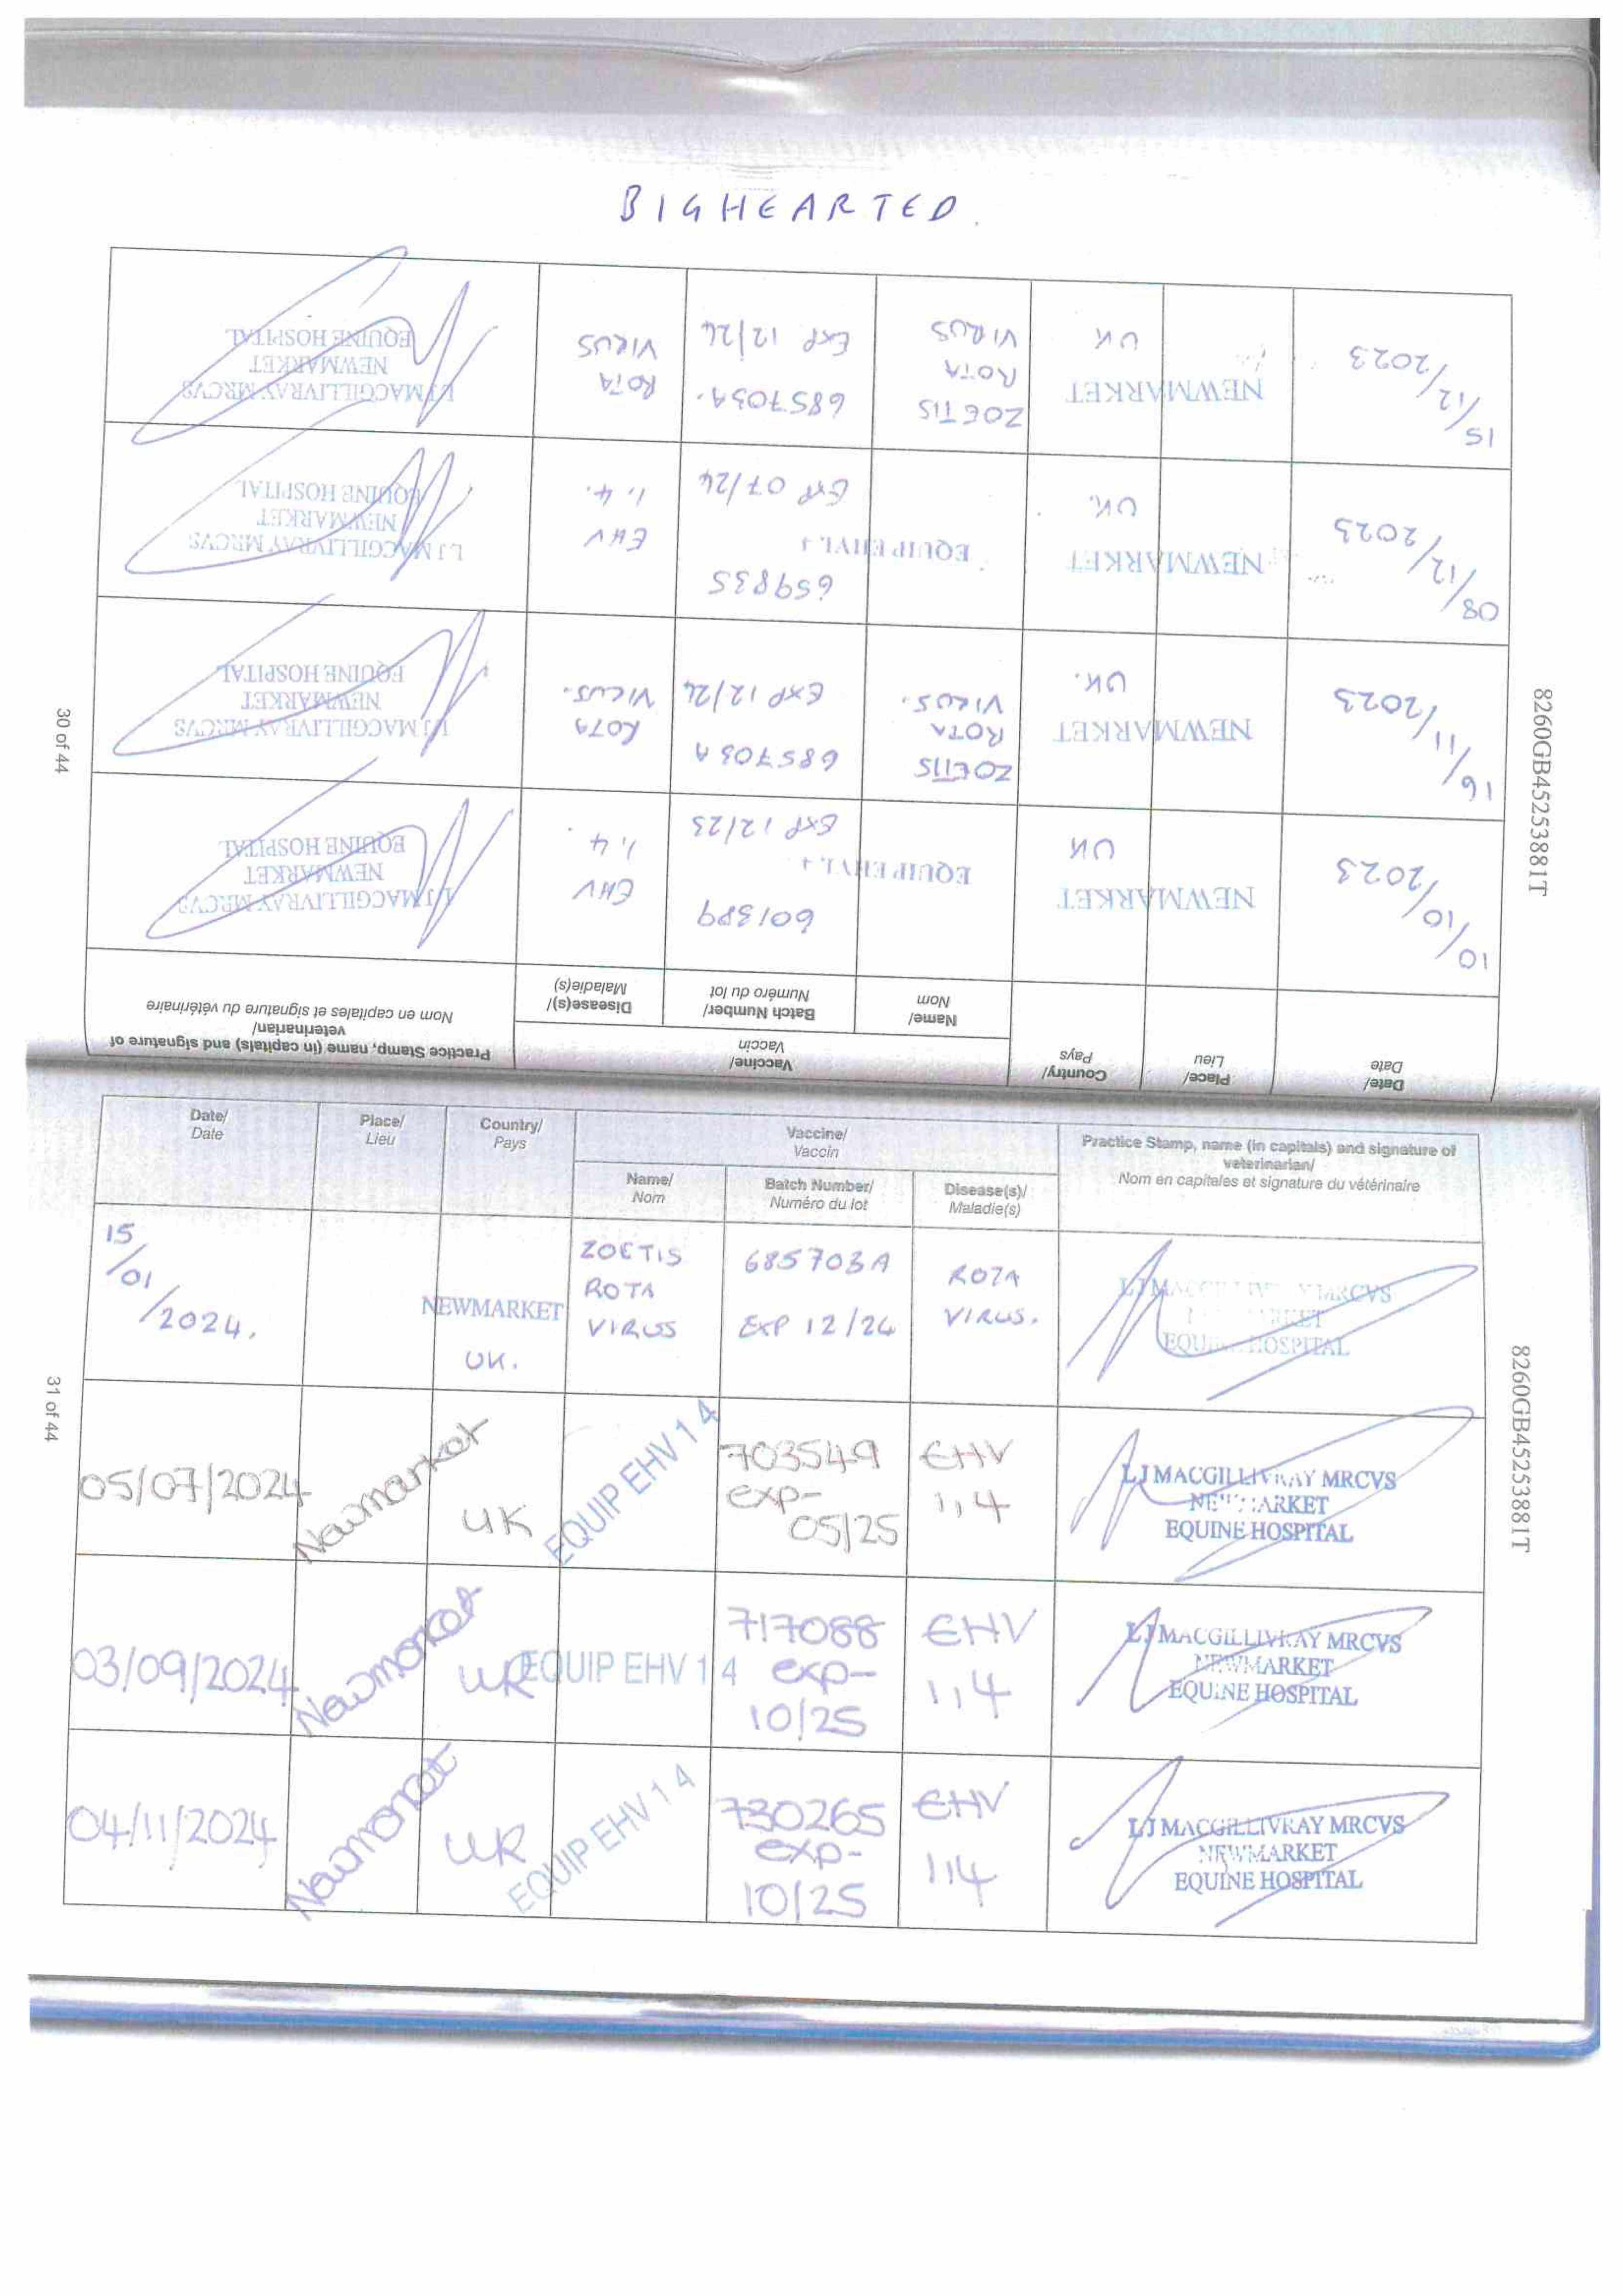 BIGHEARTED.
30 of 44
8260GB45253881T
Date/
Date
Place/
Lieu
Country/
Pays
Vaccine/
Vaccin
Name/
Nom
Batch Number/
Numéro du lot
Disease(s)/
Maladie(s)
Practice Stamp, name (in capitals) and signature of
veterinarian/
Nom en capitales et signature du vétérinaire
10/10/2023
NEWMARKET
UK
EQUIP EHV1,4
601389
EXP 12/23
EHV
1,4.
LJ MACGILLIVRAY MRCVS
NEWMARKET
EQUINE HOSPITAL
16/11/2023
NEWMARKET
UK.
ZOETIS
ROTA
VIRUS.
685703A
EXP 12/24
ROTA
VIRUS.
LJ MACGILLIVRAY MRCVS
NEWMARKET
EQUINE HOSPITAL
08/12/2023
NEWMARKET
UK.
EQUIP EHV1,4
659835
EXP 07/24
EHV
1,4.
LJ MACGILLIVRAY MRCVS
NEWMARKET
EQUINE HOSPITAL
15/12/2023
NEWMARKET
UK
ZOETIS
ROTA
VIRUS
685703A.
EXP 12/24
ROTA
VIRUS
LJ MACGILLIVRAY MRCVS
NEWMARKET
EQUINE HOSPITAL
31 of 44
8260GB45253881T
Date/
Date
Place/
Lieu
Country/
Pays
Vaccine/
Vaccin
Name/
Nom
Batch Number/
Numéro du lot
Disease(s)/
Maladie(s)
Practice Stamp, name (in capitals) and signature of
veterinarian/
Nom en capitales et signature du vétérinaire
15/01/2024.
NEWMARKET
UK.
ZOETIS
ROTA
VIRUS
685703A
EXP 12/24
ROTA
VIRUS.
LJ MACGILLIVRAY MRCVS
NEWMARKET
EQUINE HOSPITAL
05/07/2024
Newmarket
UK
EQUIP EHV 1 4
703549
exp-
05/25
EHV
1,4
LJ MACGILLIVRAY MRCVS
NEWMARKET
EQUINE HOSPITAL
03/09/2024
Newmarket
UK
EQUIP EHV 1 4
717088
exp-
10/25
EHV
1,4
LJ MACGILLIVRAY MRCVS
NEWMARKET
EQUINE HOSPITAL
04/11/2024
Newmarket
UK
EQUIP EHV 1 4
730265
exp-
10/25
EHV
1,4
LJ MACGILLIVRAY MRCVS
NEWMARKET
EQUINE HOSPITAL